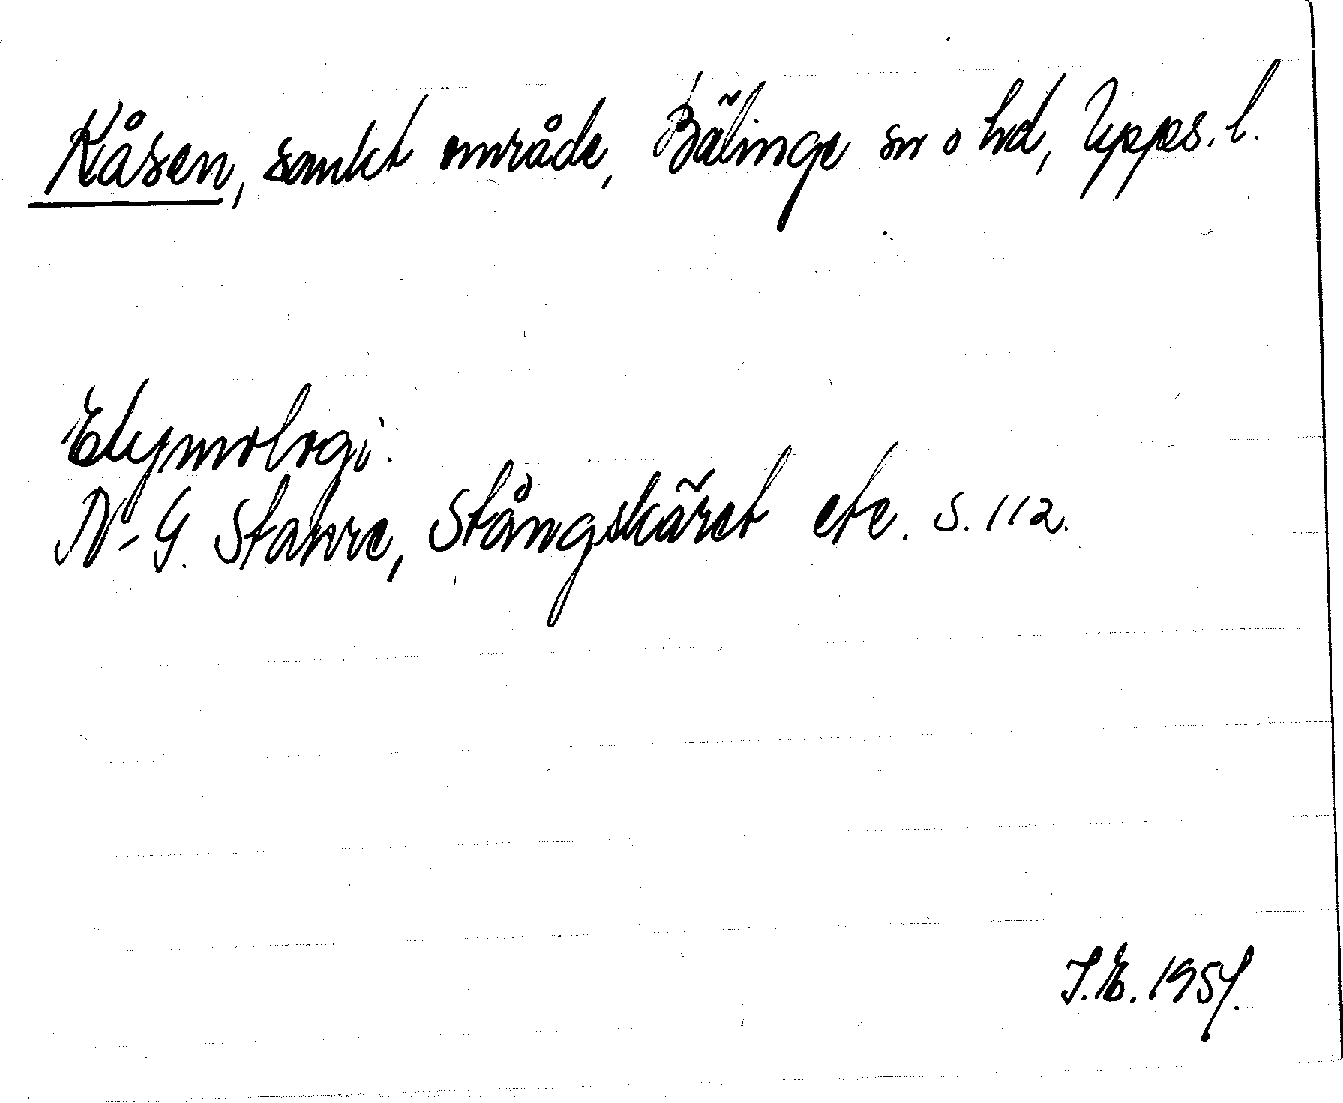 Kåsen, sankt område, Bälinge sn o hd, Upps. l.
Etymologi:
N-G. Stahre, Stångskäret etc. s. 112.